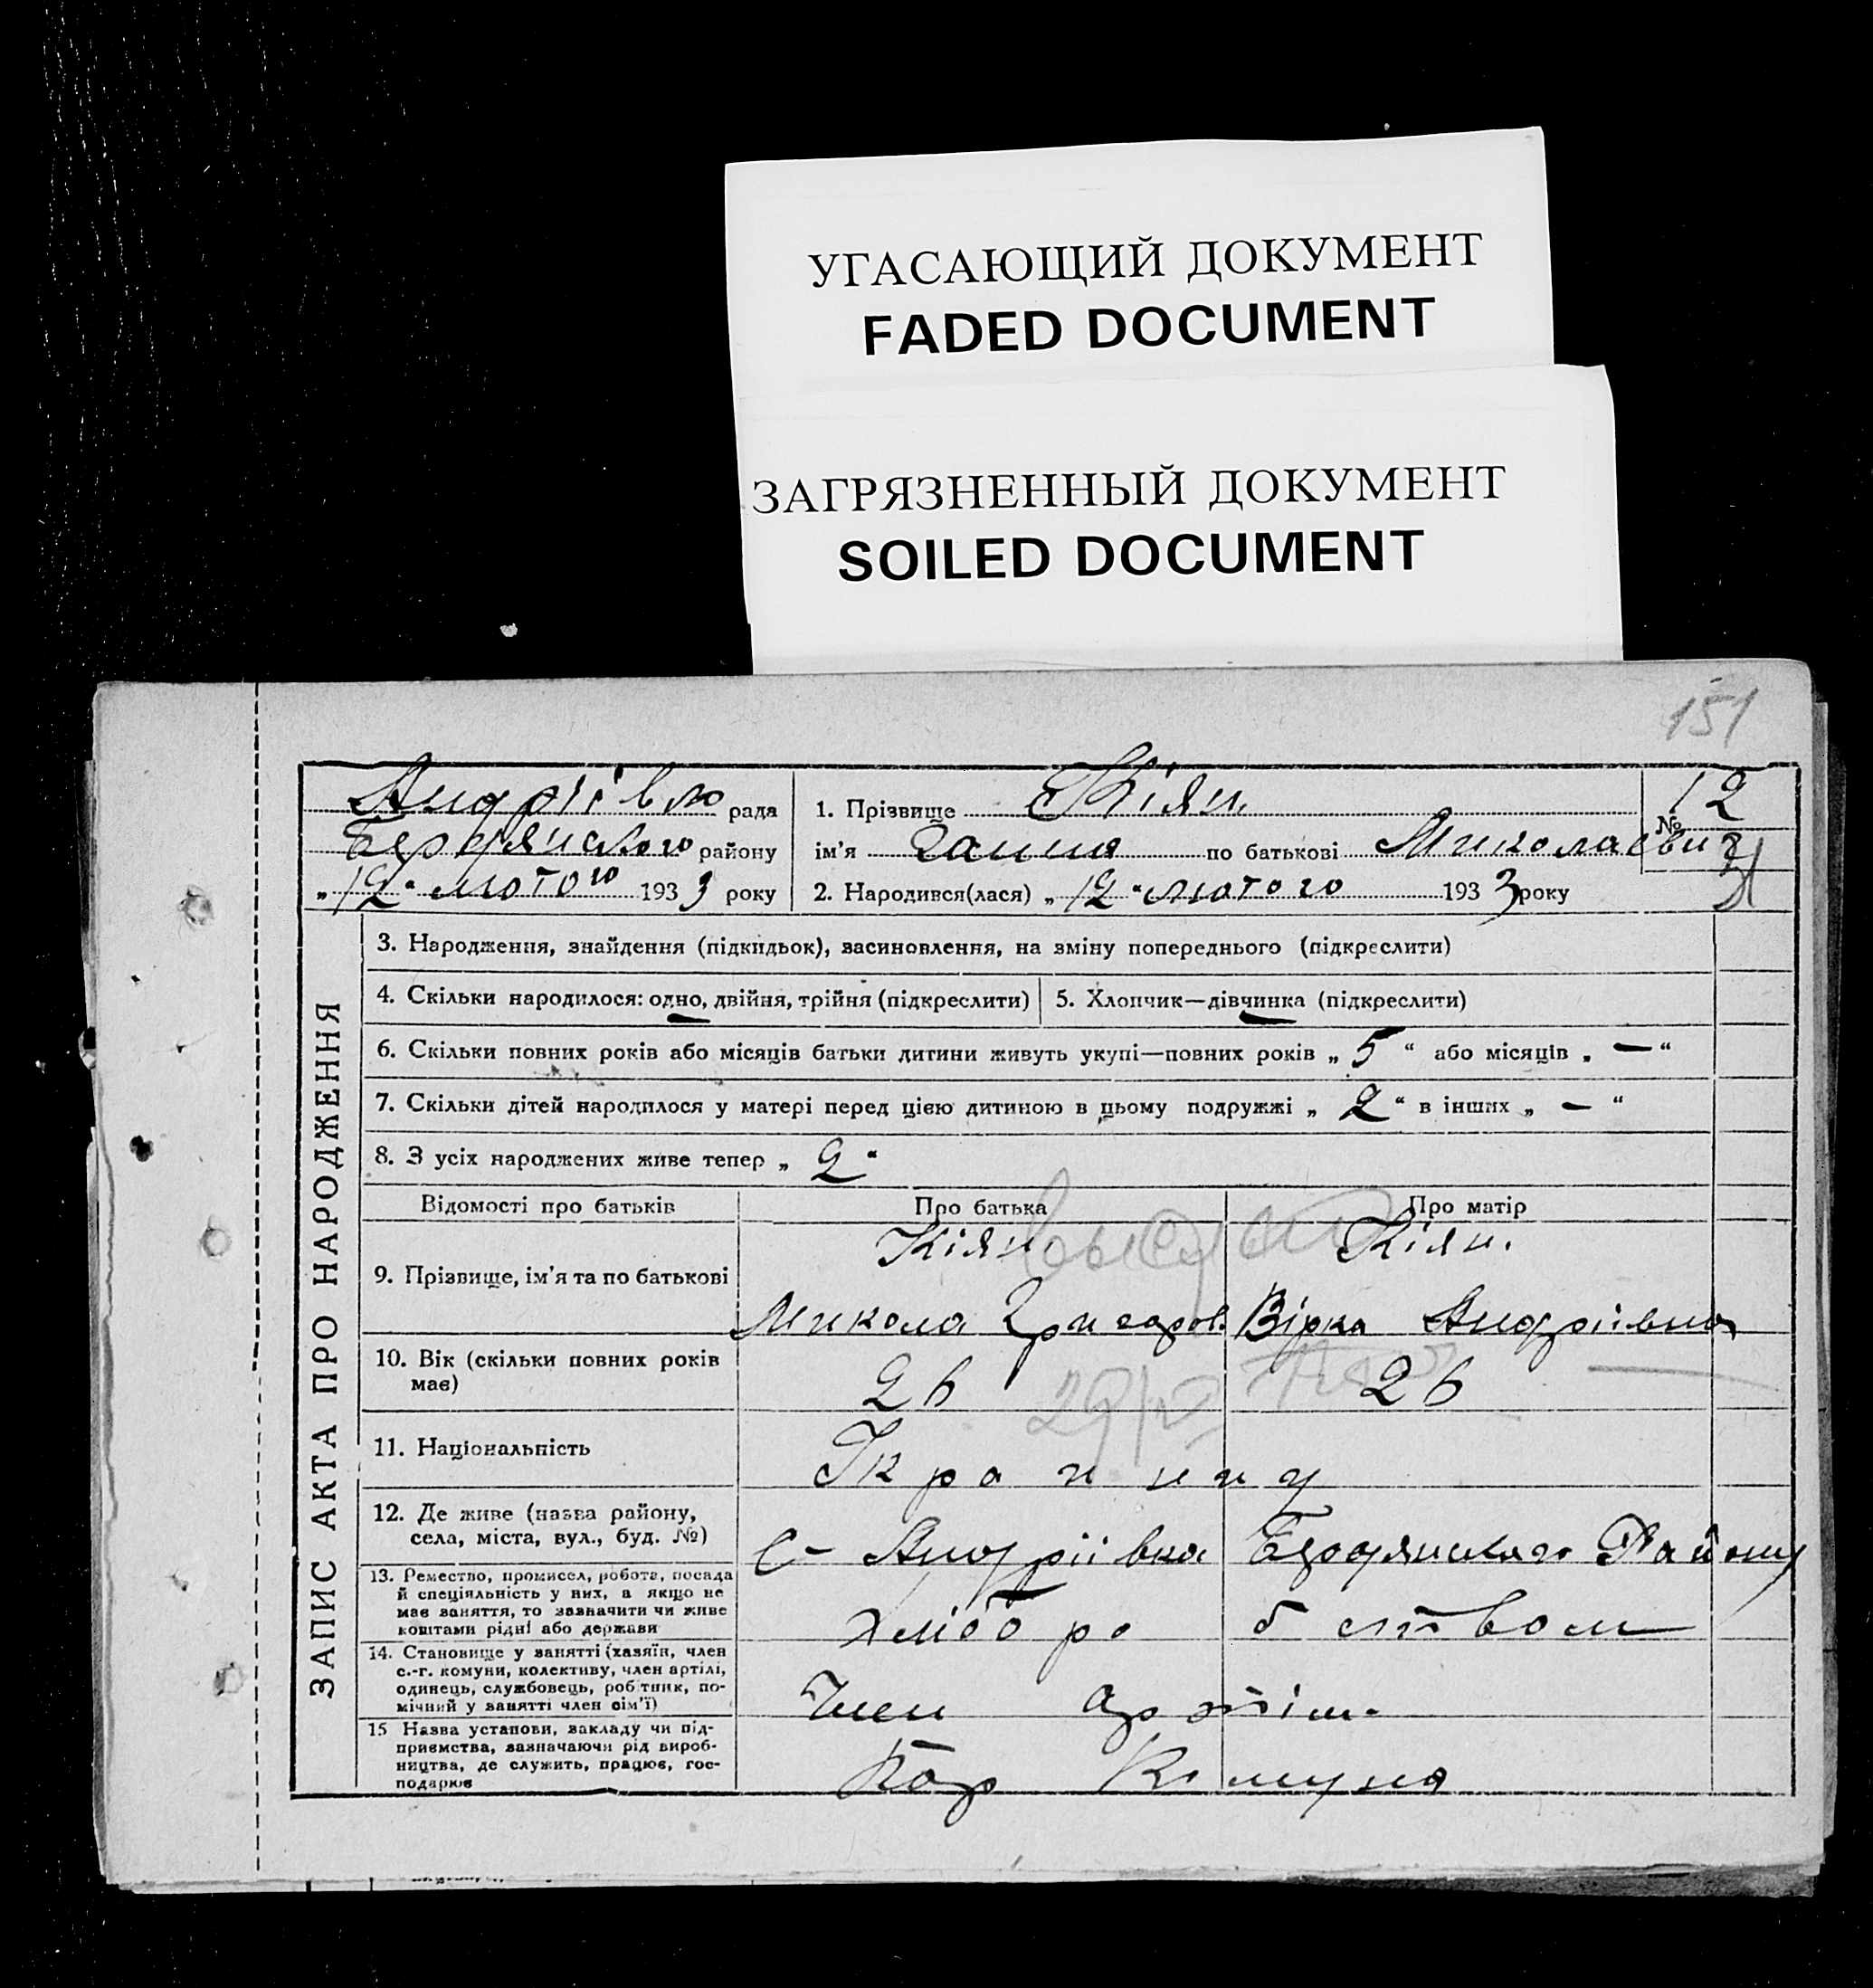 УГАСАЮЩИЙ ДОКУМЕНТ
FADED DOCUMENT
ЗАГРЯЗНЕННЫЙ ДОКУМЕНТ
SOILED DOCUMENT
151
Андріївю рада
Бердянского району
„12“ лютого 1933 року
1. Прізвище Кіян.
ім'я Ганна по батькові Миколаєвн
2. Народився(лася) „12“ лютого 1933 року
№ 12
ЗАПИС АКТА ПРО НАРОДЖЕННЯ
3. Народження, знайдення (підкидьок), засиновлення, на зміну попереднього (підкреслити)
4. Скільки народилося: одно, двійня, трійня (підкреслити)
5. Хлопчик—дівчинка (підкреслити)
6. Скільки повних років або місяців батьки дитини живуть укупі—повних років „5“ або місяців „—“
7. Скільки дітей народилося у матері перед цією дитиною в цьому подружжі „2“ в інших „—“
8. З усіх народжених живе тепер „2“
Відомості про батьків Про батька Про матір
9. Прізвище, ім'я та по батькові
Кіян. Кіян.
Микола Григоров. Вірка Андріївна
10. Вік (скільки повних років
має)
26 26
29/IV
11. Національність
12. Де живе (назва району,
села, міста, вул., буд. №)
С- Андріївка Бердянського Району
13. Ремество, промисел, робота, посада
й спеціяльність у них, а якщо не
має заняття, то зазначити чи живе
коштами рідні або держави
хлібо ро б ством
14. Становище у занятті (хазяїн, член
с.-г. комуни, колективу, член артілі,
одинець, службовець, робітник, по-
мічний у занятті член сім'ї)
Член артіли.
15 Назва установи, закладу чи під-
приємства, зазначаючи рід вироб-
ництва, де служить, працює, гос-
подарює
Комуна